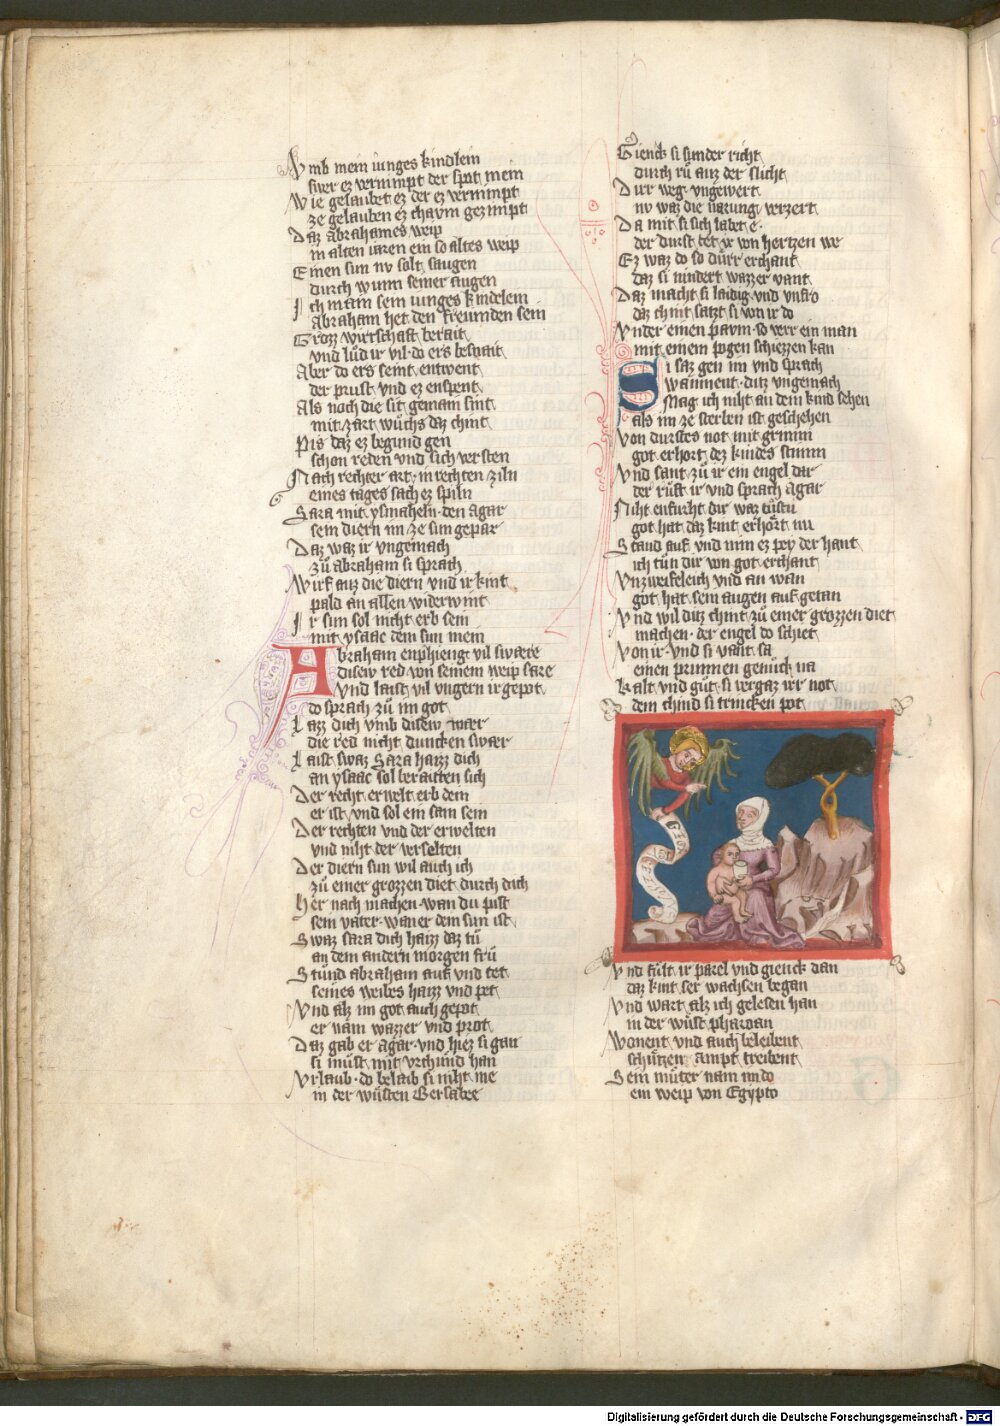 Vmb mein iunges kindlein
swer ez vernimpt der spot mein
Wie gelaubet ez der ez vernimpt
ze gelauben ez chaum gezimpt
Daz abrahames weip
in alten iaren ein so altes weip
Einen sun nv solt saugen
durch wunn seiner augen
Ich main sein iunges kindelein
Abraham het den freunden sein
Grozz wirtschaft berait
vnd lud ir vil do ers bespait
Aber do ers seint entwent
der prust vnd ez enspent
Als noch die sit gemain sint
mit zart wuchs daz chint
Pis daz ez begund gen
schon reden vnd sich versten
Nach rechter art in rechten ziln
eines tages sach ez spiln
Sara mit ysmaheln den agar
sein diern im ze sun gepar
Daz waz ir vngemach
zů abraham si sprach
Wirf auz die diern vnd ir kint
pald an allen widerwint
Ir sun sol nicht erb sein
mit ysaac dem sun mein
Abraham enphieng vil swære
disew red von seinem weip sare
Vnd laist vil vngern ir gepot
do sprach zů im got
Lazz dich vmb disew mær
die red nicht duncken swær
Laist swaz Sara haizz dich
an ysaac sol beraitten sich
Der recht erwelt erb dein
er ist vnd sol ein sam sein
Der rechten vnd der erwelten
vnd niht der verselten
Der diern sun wil auch ich
zů einer grozzen diet durch dich
Her nach machen wan du pist
sein vater waner dein sun ist
Swaz sara dich haizz daz tů
an dem andern morgen frů
Stůnd abraham auf vnd tet
seines weibes haizz vnd pet
Vnd alz im got auch gepot
er nam wazzer vnd prot
Daz gab er agar vnd hiez si gan
si must mit vrchund han
Vrlaub do belaib si niht me
in der wůsten Bersabee
Gienck si sunder richt
durch rů auz der slicht
Durr weg vngewert
nv waz die narung verzert
Da mit si sich labet e
der durst tet ir von hertzen we
Ez waz do so dürr erchant
daz si nindert wazzer vant
Daz macht si laidig vnd vnfro
daz chint satzt si von ir do
Vnder einen paum so verr ein man
mit einem pogen schiezzen kan
Si saz gen im vnd sprach
Wainnent ditz vngemach
Mag ich niht an dem kind sehen
als im ze sterben ist geschehen
Von durstes not mit grimm
got erhort dez kindes stimm
Vnd sant zů ir ein engel dar
der růft ir vnd sprach Agar
Niht enfurcht dir waz tůstu
got hat daz kint erhört nu
Stand auf vnd nim ez pey der hant
ich tůn dir von got erchant
Vnzweifeleich vnd an wan
got hat sein augen auf getan
Vnd wil ditz chint zů einer grozzen diet
machen der engel do schiet
Von ir vnd si vant sa
einen prunnen genůch na
Kalt vnd gůt si vergaz irr not
dem chind si trincken pot
Vnd fůlt ir parel vnd gienck dan
daz kint ser wachsen began
Vnd wart alz ich gelesen han
in der wůst pharaan
Wonent vnd auch beleibent
schützen ampt treibent
Sein můter nam im do
ein weip von Egypto
Digitalisierung gefördert durch die Deutsche Forschungsgemeinschaft - DFG